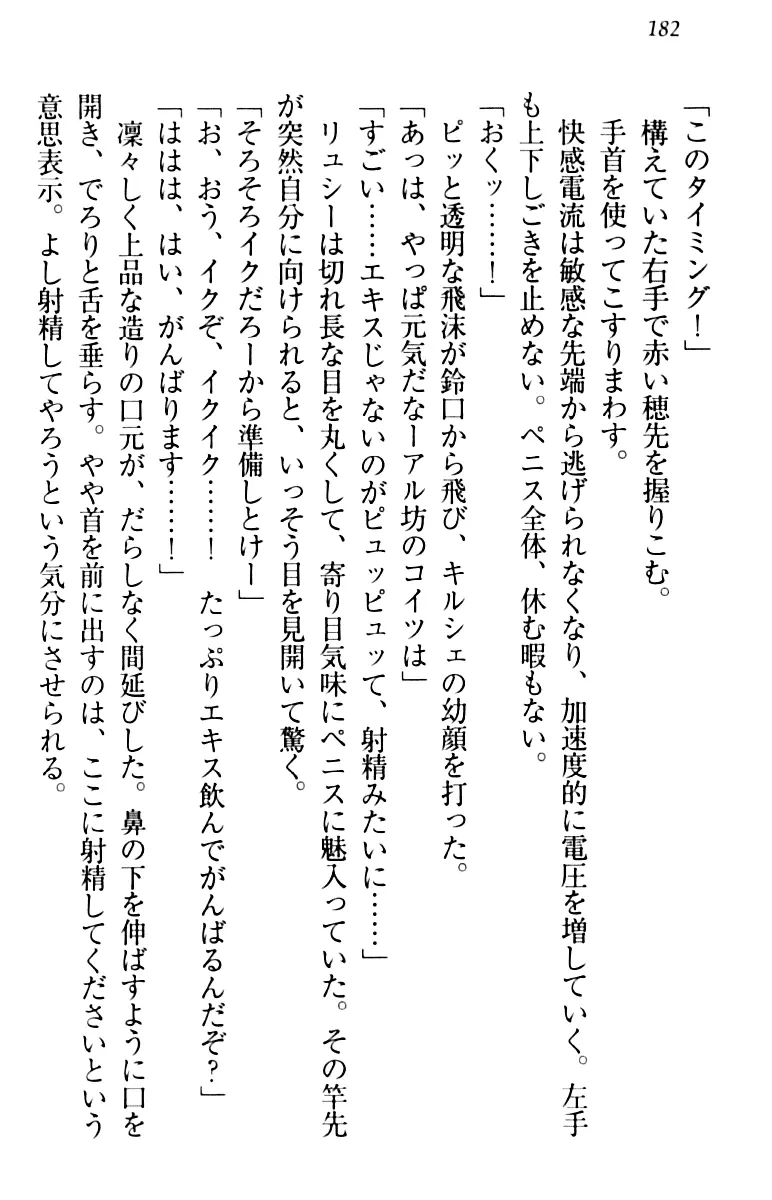 182
「このタイミング！」
構えていた右手で赤い穂先を握りこむ。
手首を使ってこすりまわす。
快感電流は敏感な先端から逃げられなくなり、加速度的に電圧を増していく。左手
も上下しごきを止めない。ペニス全体、休む暇もない。
「おくッ……！」
ピッと透明な飛沫が鈴口から飛び、キルシェの幼顔を打った。
「あっは、やっぱ元気だなーアル坊のコイツは」
「すごい……エキスじゃないのがピュッピュッて、射精みたいに……」
リュシーは切れ長な目を丸くして、寄り目気味にペニスに魅入っていた。その竿先
が突然自分に向けられると、いっそう目を見開いて驚く。
「そろそろイクだろーから準備しとけー」
「お、おう、イクぞ、イクイク……！　たっぷりエキス飲んでがんばるんだぞ？」
「ははは、はい、がんばります……！」
凜々しく上品な造りの口元が、だらしなく間延びした。鼻の下を伸ばすように口を
開き、でろりと舌を垂らす。やや首を前に出すのは、ここに射精してくださいという
意思表示。よし射精してやろうという気分にさせられる。